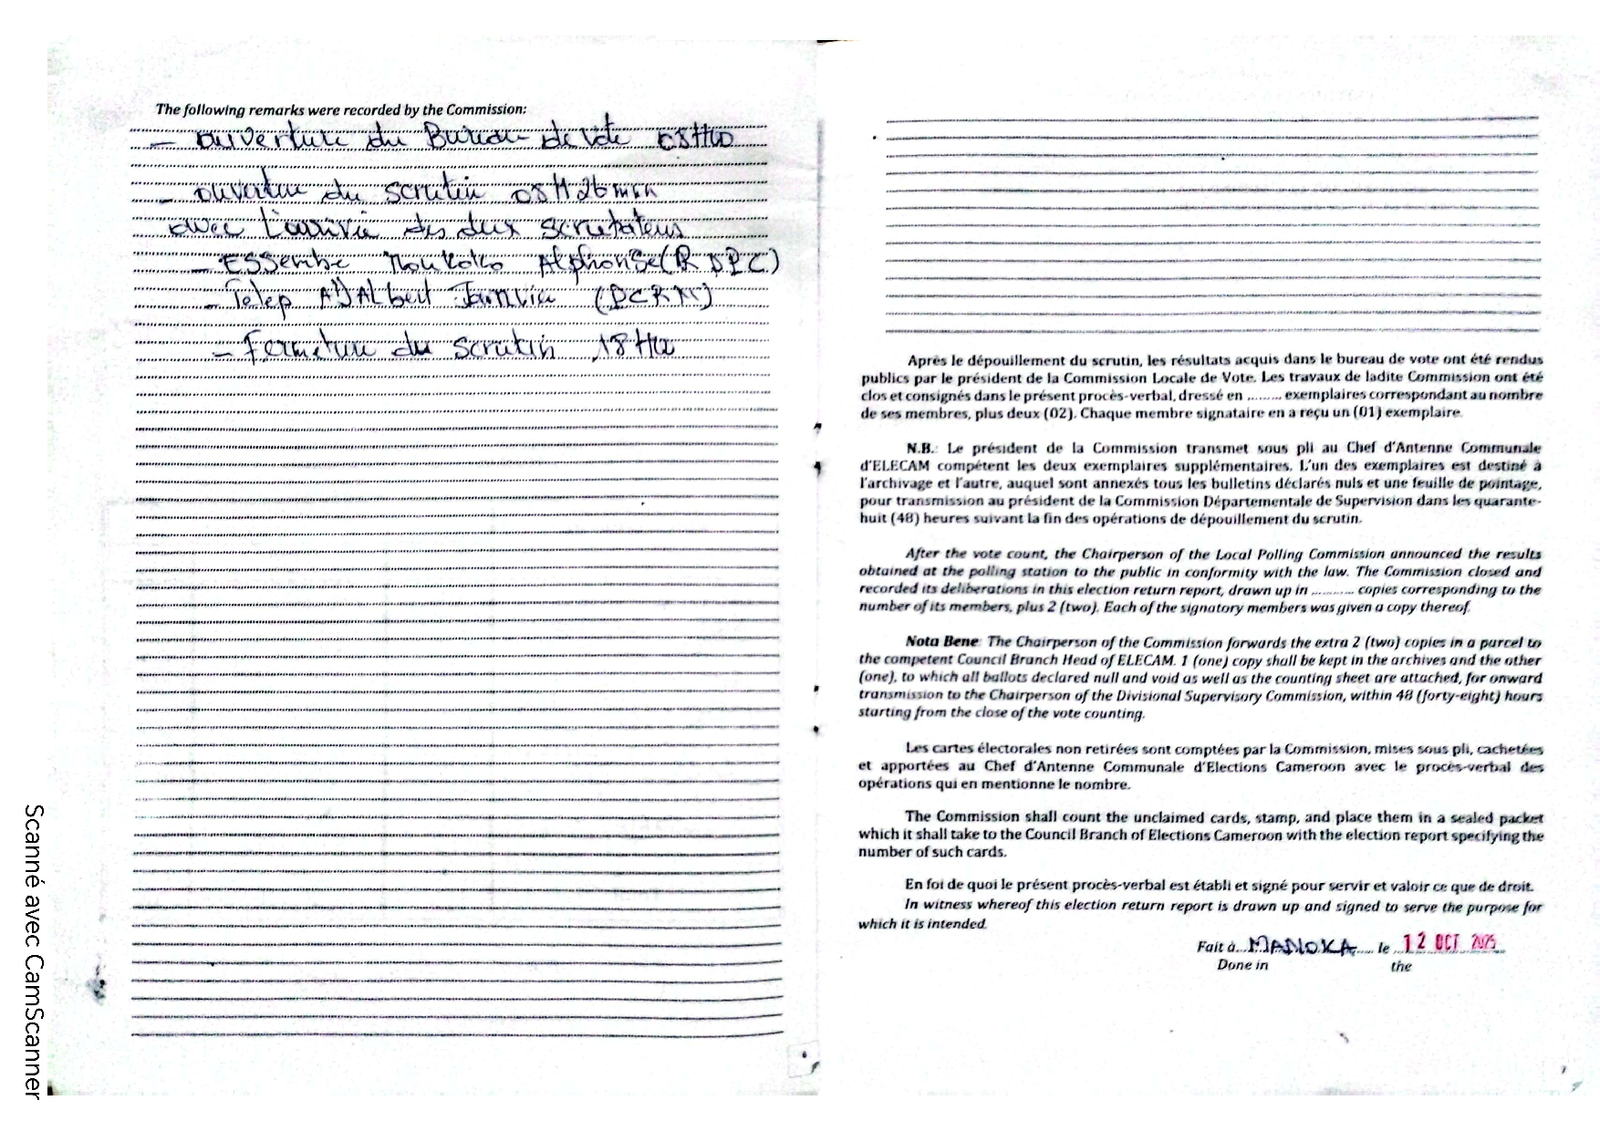 The following remarks were recorded by the Commission:
- ouverture du Bureau de vote 08H00
- ouverture du scrutin 08H26min
avec l'arrivé des deux scrutateurs
- ESSembe Moukoko Alphonse (RDPC)
- Albert (PCRN)
- Fermeture du scrutin 18H00
Après le dépouillement du scrutin, les résultats acquis dans le bureau de vote ont été rendus
publics par le président de la Commission Locale de Vote. Les travaux de ladite Commission ont été
clos et consignés dans le présent procès-verbal, dressé en ........ exemplaires correspondant au nombre
de ses membres, plus deux (02). Chaque membre signataire en a reçu un (01) exemplaire.
N.B.: Le président de la Commission transmet sous pli au Chef d'Antenne Communale
d'ELECAM compétent les deux exemplaires supplémentaires. L'un des exemplaires est destiné à
l'archivage et l'autre, auquel sont annexés tous les bulletins déclarés nuls et une feuille de pointage,
pour transmission au président de la Commission Départementale de Supervision dans les quarante-
huit (48) heures suivant la fin des opérations de dépouillement du scrutin.
After the vote count, the Chairperson of the Local Polling Commission announced the results
obtained at the polling station to the public in conformity with the law. The Commission closed and
recorded its deliberations in this election return report, drawn up in .......... copies corresponding to the
number of its members, plus 2 (two). Each of the signatory members was given a copy thereof.
Nota Bene: The Chairperson of the Commission forwards the extra 2 (two) copies in a parcel to
the competent Council Branch Head of ELECAM. 1 (one) copy shall be kept in the archives and the other
(one), to which all ballots declared null and void as well as the counting sheet are attached, for onward
transmission to the Chairperson of the Divisional Supervisory Commission, within 48 (forty-eight) hours
starting from the close of the vote counting.
Les cartes électorales non retirées sont comptées par la Commission, mises sous pli, cachetées
et apportées au Chef d'Antenne Communale d'Elections Cameroon avec le procès-verbal des
opérations qui en mentionne le nombre.
The Commission shall count the unclaimed cards, stamp, and place them in a sealed packet
which it shall take to the Council Branch of Elections Cameroon with the election report specifying the
number of such cards.
En foi de quoi le présent procès-verbal est établi et signé pour servir et valoir ce que de droit.
In witness whereof this election return report is drawn up and signed to serve the purpose for
which it is intended.
Fait à... MANOKA .... le ..12 OCT 2025
Done in the
Scanné avec CamScanner